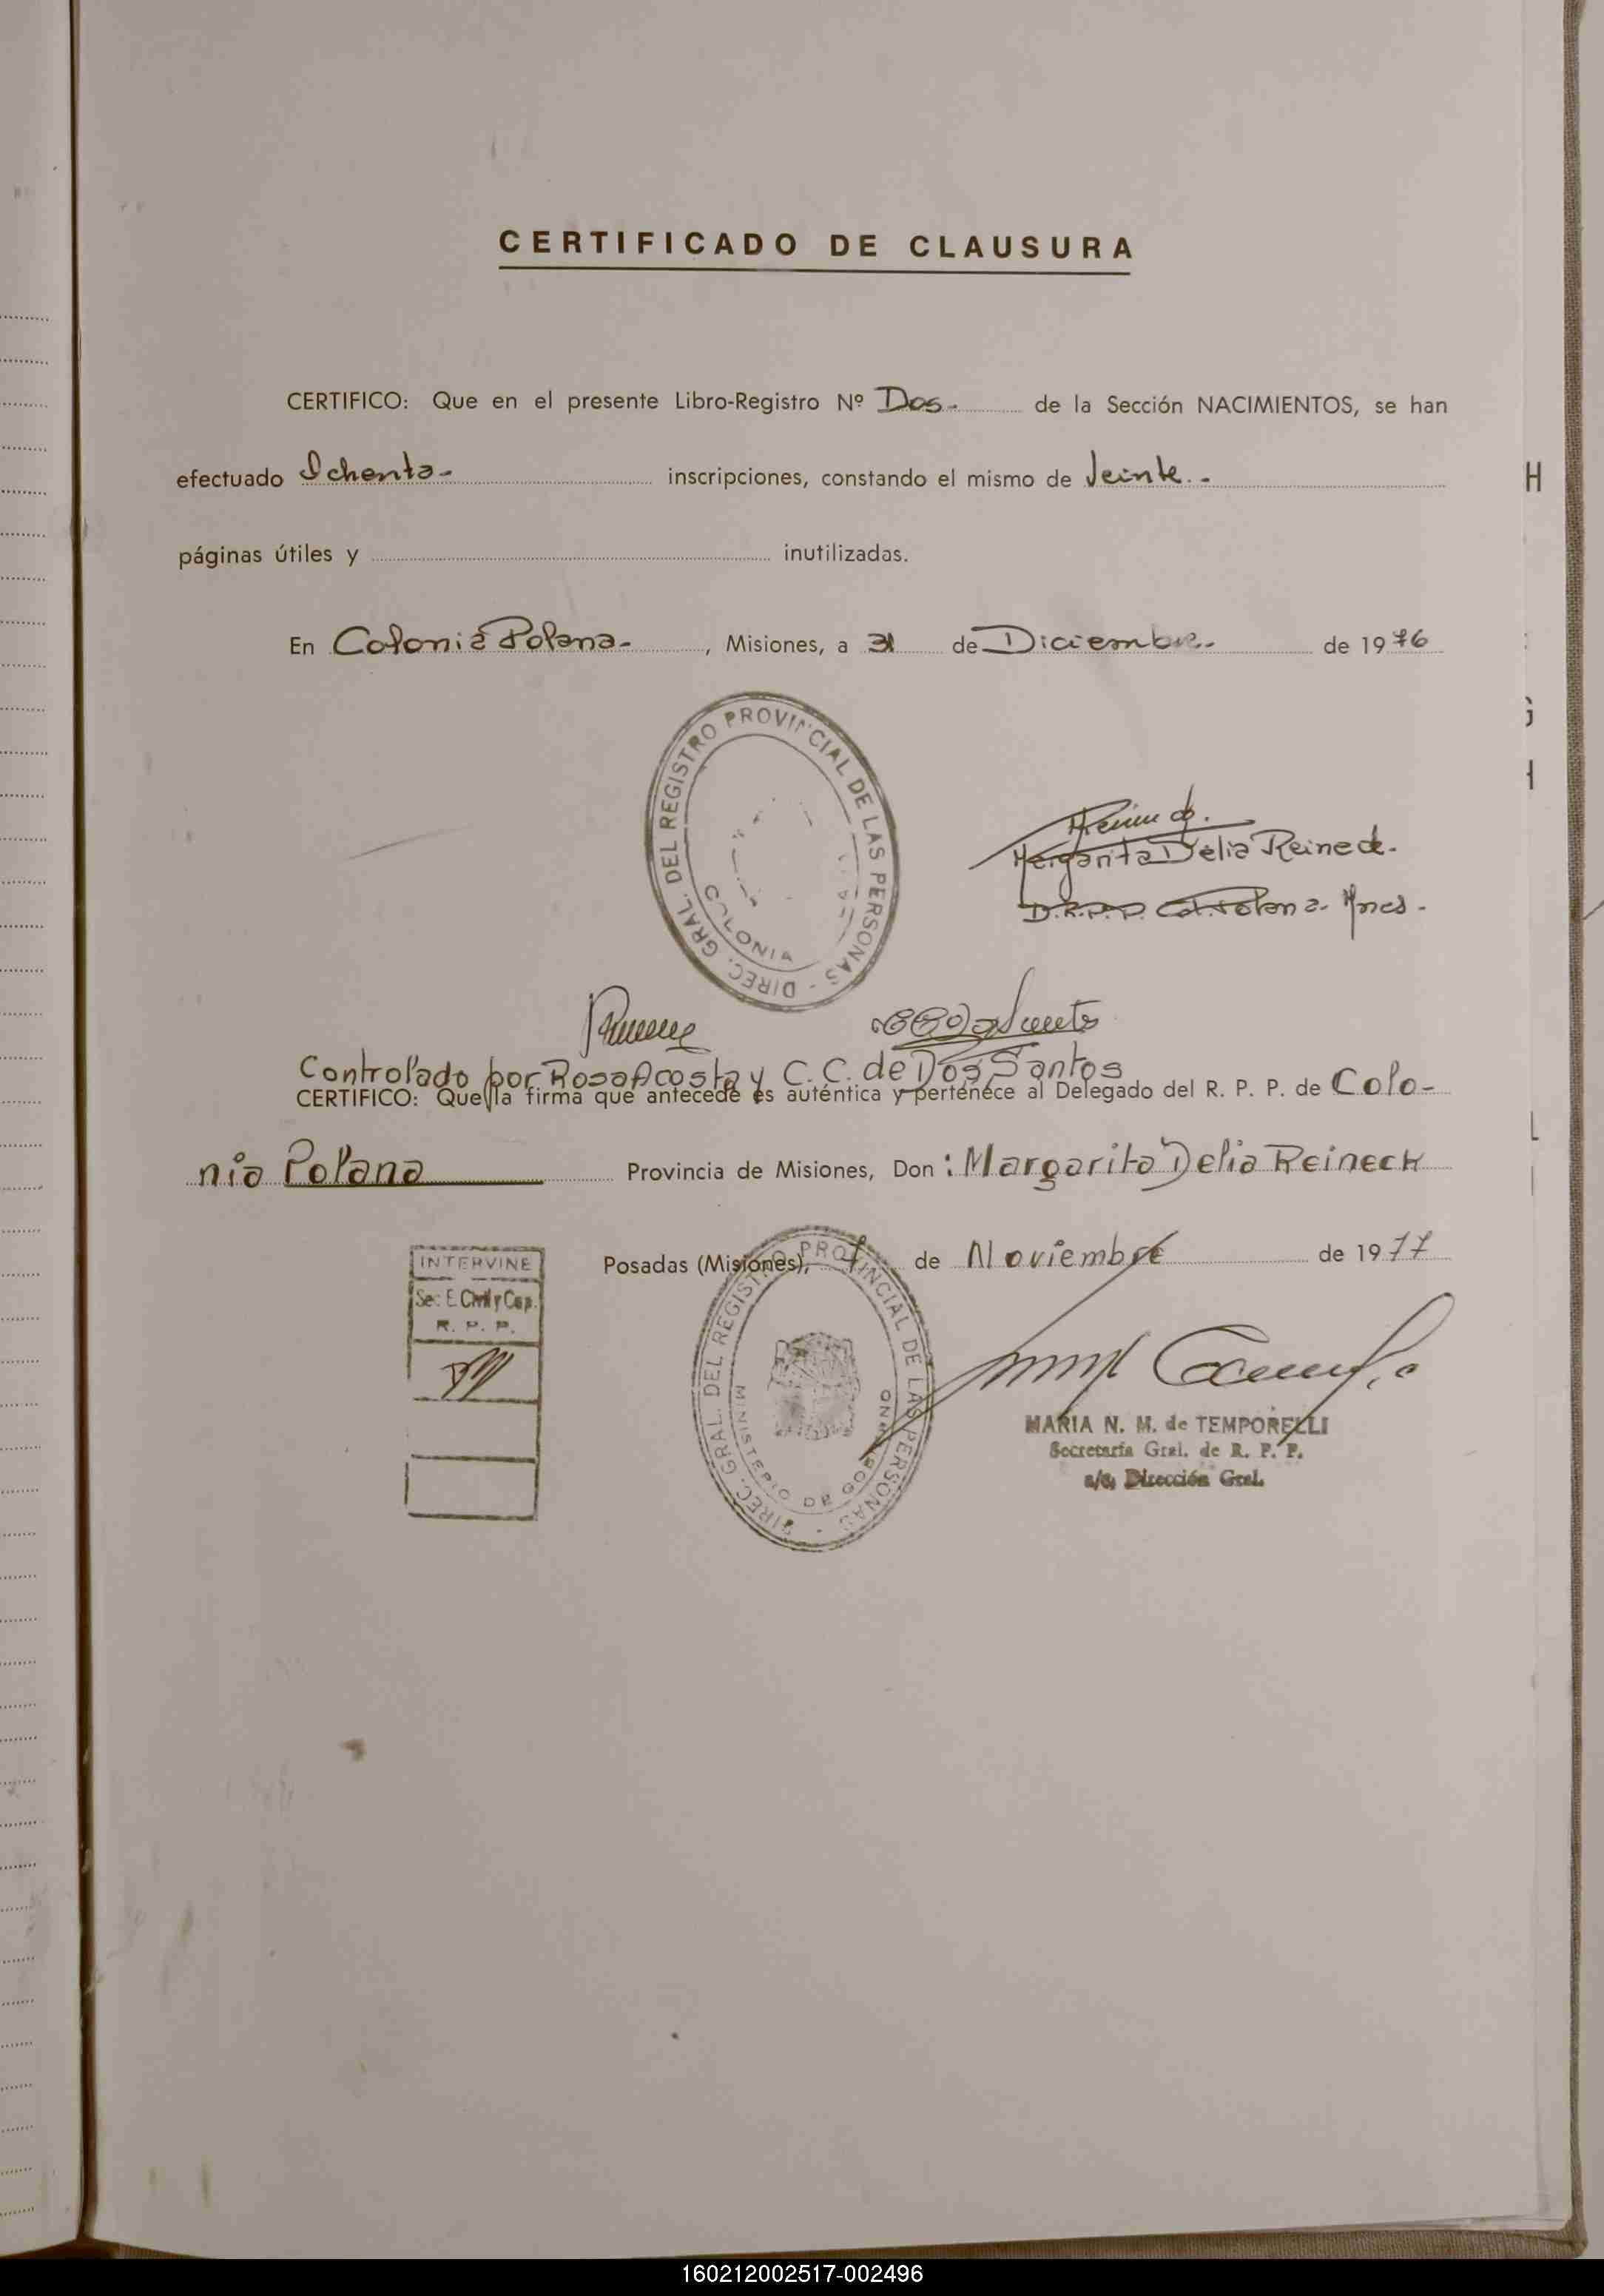 CERTIFICADO DE CLAUSURA
CERTIFICO: Que en el presente Libro-Registro Nº Dos- de la Sección NACIMIENTOS, se han
efectuado Ochenta- inscripciones, constando el mismo de Veinte.-
páginas útiles y inutilizadas.
En Colonia Polana- , Misiones, a 31 de Diciembre.- de 1976
DIREC. GRAL. DEL REGISTRO PROVINCIAL DE LAS PERSONAS -
COLONIA
Margarita Delia Reineck.
D.R.P.P. Col. Polana. Mnes.
Controlado por Rosa Acosta y C. C. de Dos Santos
CERTIFICO: Que la firma que antecede es auténtica y pertenece al Delegado del R. P. P. de Colo-
nia Polana Provincia de Misiones, Don: Margarita Delia Reineck
Posadas (Misiones), de Noviembre de 1977
INTERVINE
Sec. E. Civil y Cap.
R. P. P.
DIREC. GRAL. DEL REGISTRO PROVINCIAL DE LAS PERSONAS -
MINISTERIO DE GOBIERNO
MARIA N. M. de TEMPORELLI
Secretaria Gral. de R. P. P.
a/c. Dirección Gral.
160212002517-002496